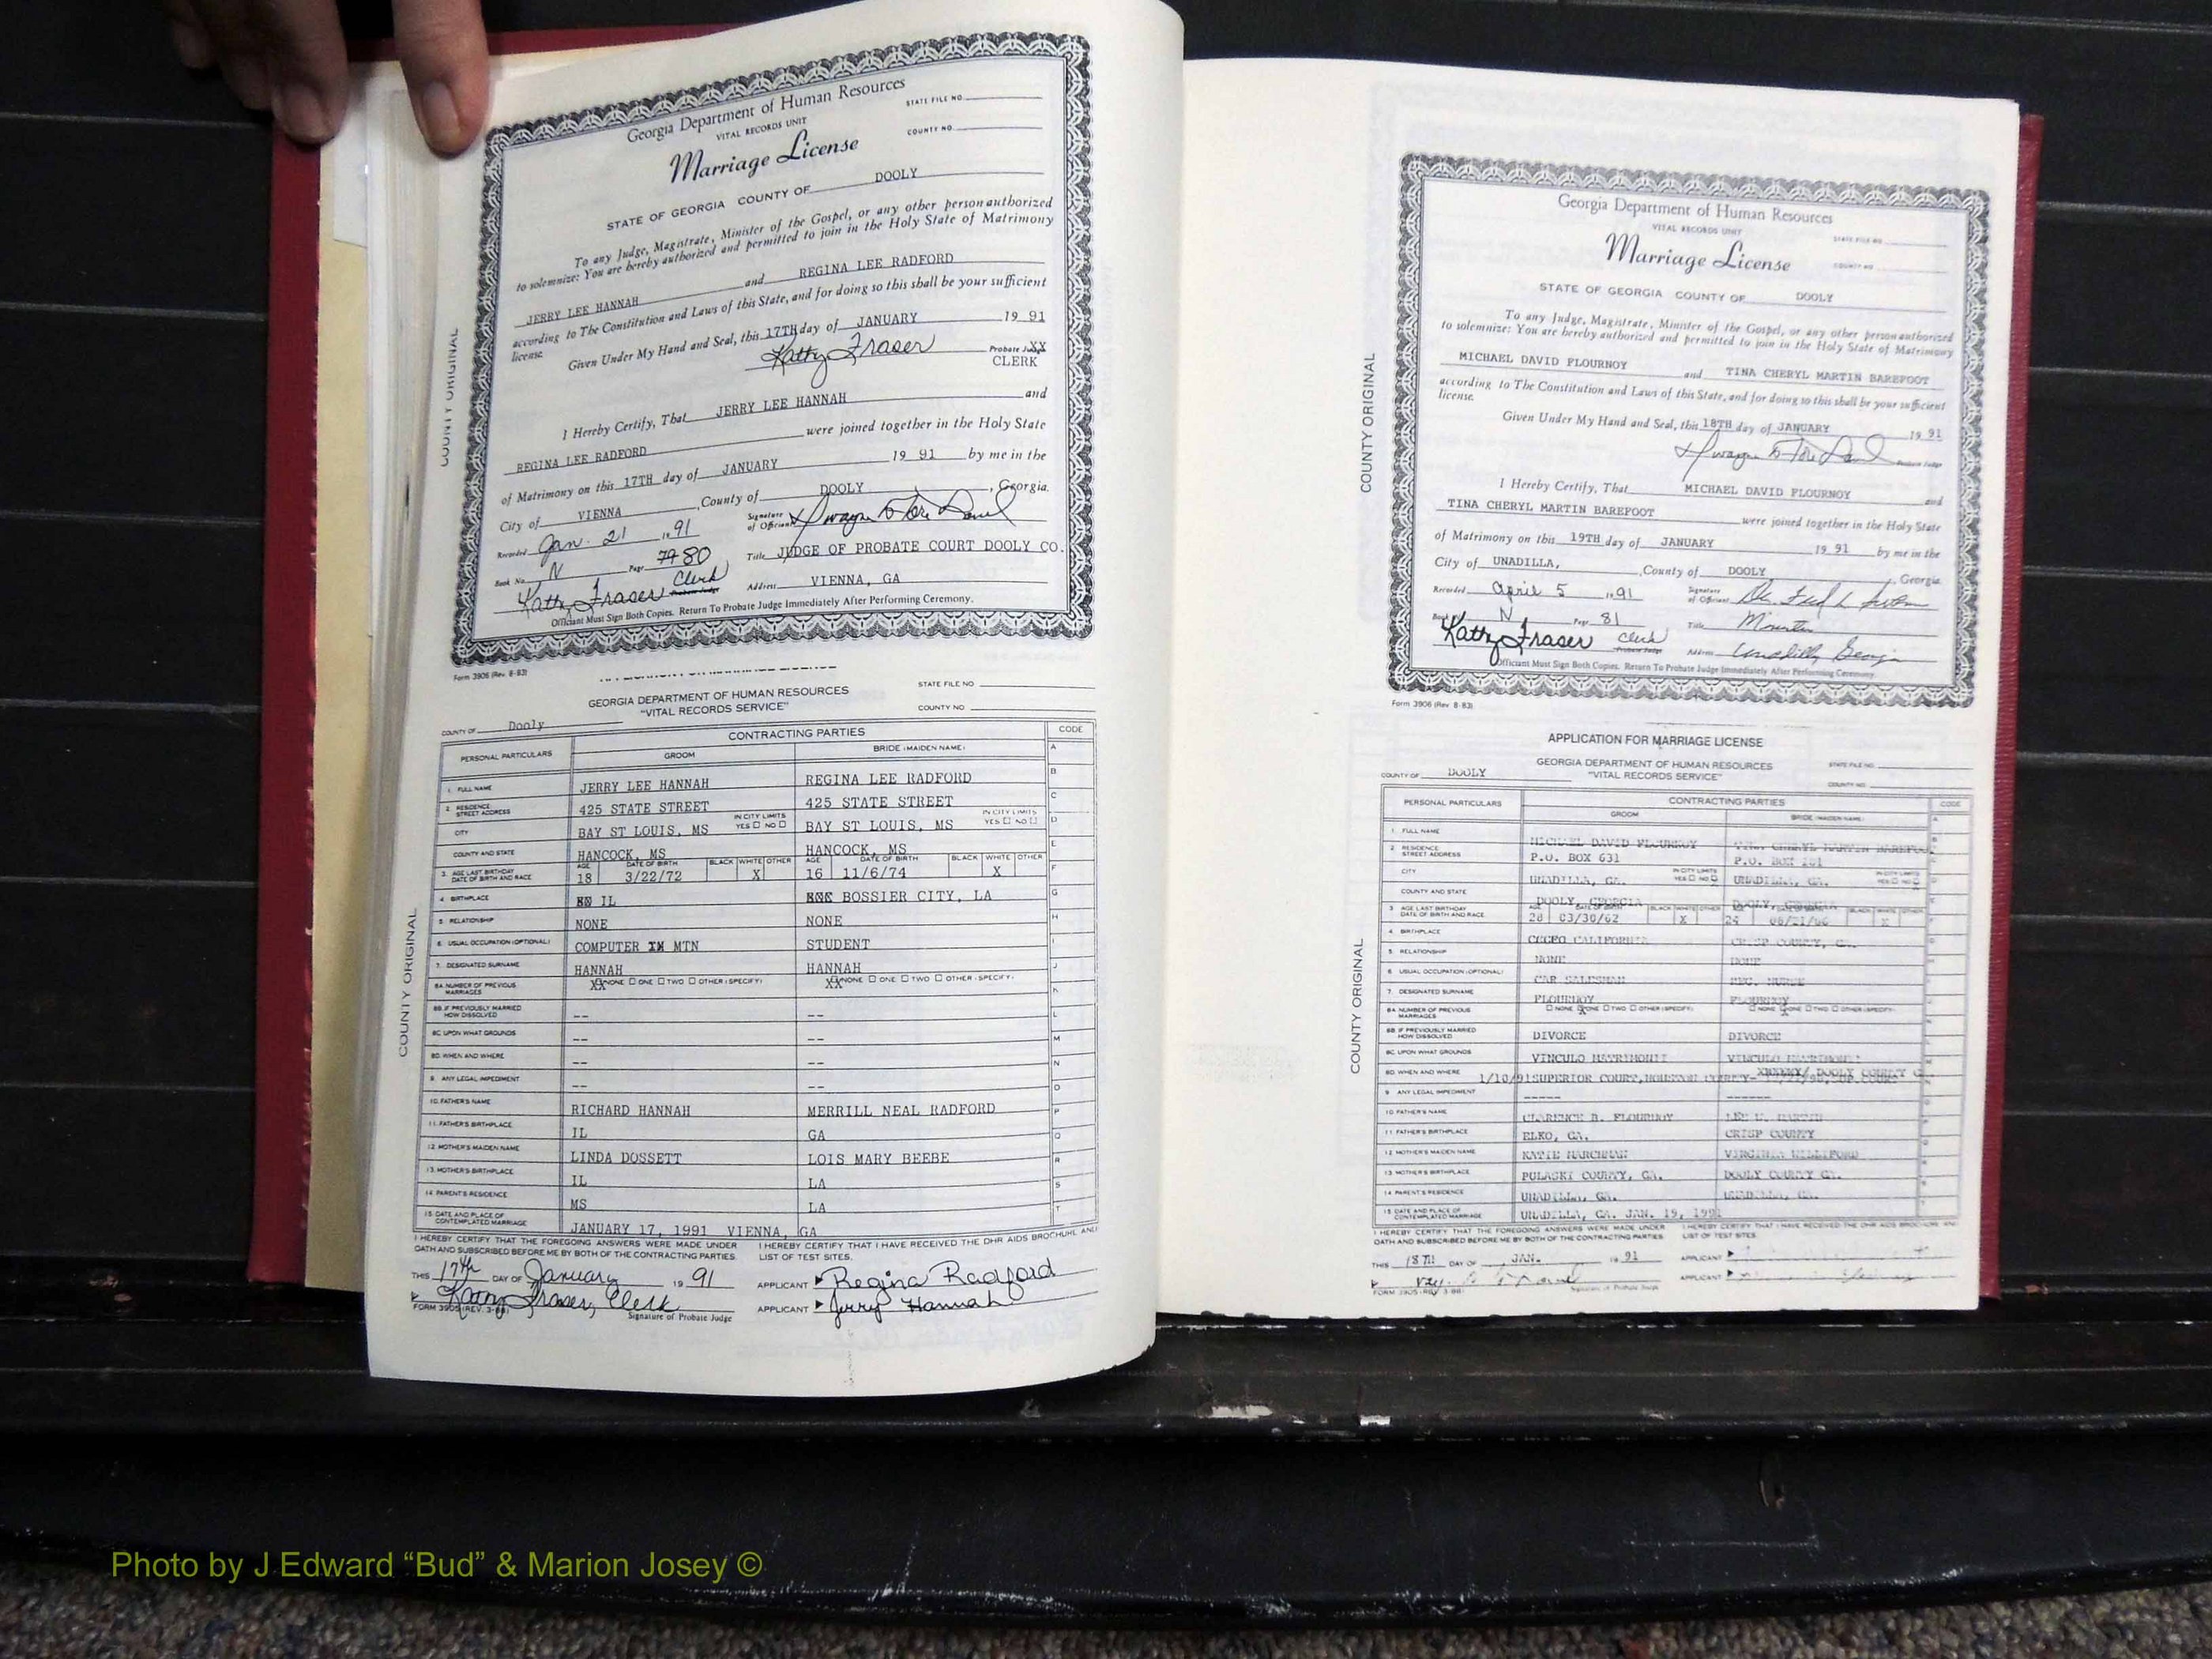 Georgia Department of Human Resources
VITAL RECORDS UNIT
STATE FILE NO.
COUNTY NO.
Marriage License
STATE OF GEORGIA COUNTY OF DOOLY
To any Judge, Magistrate, Minister of the Gospel, or any other person authorized
to solemnize: You are hereby authorized and permitted to join in the Holy State of Matrimony
JERRY LEE HANNAH and REGINA LEE RADFORD
according to The Constitution and Laws of this State, and for doing so this shall be your sufficient
license.
Given Under My Hand and Seal, this 17TH day of JANUARY 19 91
Kathy Fraser Probate Judge XX
CLERK
I Hereby Certify, That JERRY LEE HANNAH and
REGINA LEE RADFORD were joined together in the Holy State
of Matrimony on this 17TH day of JANUARY 19 91 by me in the
City of VIENNA, County of DOOLY, Georgia.
Recorded Jan. 21 19 91 Signature of Official
Book No. N Page 79 80 Title JUDGE OF PROBATE COURT DOOLY CO.
Kathy Fraser Clerk Probate Judge Address VIENNA, GA
Officiant Must Sign Both Copies. Return To Probate Judge Immediately After Performing Ceremony.
COUNTY ORIGINAL
Form 3906 (Rev. 8-83)
GEORGIA DEPARTMENT OF HUMAN RESOURCES
"VITAL RECORDS SERVICE"
STATE FILE NO
COUNTY NO
COUNTY OF Dooly
PERSONAL PARTICULARS CONTRACTING PARTIES CODE
GROOM BRIDE (MAIDEN NAME)
1. FULL NAME JERRY LEE HANNAH REGINA LEE RADFORD
2. RESIDENCE STREET ADDRESS 425 STATE STREET 425 STATE STREET
CITY BAY ST LOUIS, MS IN CITY LIMITS YES NO BAY ST LOUIS, MS IN CITY LIMITS YES NO
COUNTY AND STATE HANCOCK, MS HANCOCK, MS
3. AGE LAST BIRTHDAY DATE OF BIRTH AND RACE AGE 18 DATE OF BIRTH 3/22/72 BLACK WHITE X OTHER AGE 16 DATE OF BIRTH 11/6/74 BLACK WHITE X OTHER
4. BIRTHPLACE IL BOSSIER CITY, LA
5. RELATIONSHIP NONE NONE
6. USUAL OCCUPATION (OPTIONAL) COMPUTER MTN STUDENT
7. DESIGNATED SURNAME HANNAH HANNAH
8A. NUMBER OF PREVIOUS MARRIAGES XX NONE ONE TWO OTHER (SPECIFY) XX NONE ONE TWO OTHER (SPECIFY)
8B. IF PREVIOUSLY MARRIED HOW DISSOLVED -- --
8C. UPON WHAT GROUNDS -- --
8D. WHEN AND WHERE -- --
9. ANY LEGAL IMPEDIMENT -- --
10. FATHER'S NAME RICHARD HANNAH MERRILL NEAL RADFORD
11. FATHER'S BIRTHPLACE IL GA
12. MOTHER'S MAIDEN NAME LINDA DOSSETT LOIS MARY BEEBE
13. MOTHER'S BIRTHPLACE IL LA
14. PARENT'S RESIDENCE MS LA
15. DATE AND PLACE OF CONTEMPLATED MARRIAGE JANUARY 17, 1991 VIENNA, GA
I HEREBY CERTIFY THAT THE FOREGOING ANSWERS WERE MADE UNDER
OATH AND SUBSCRIBED BEFORE ME BY BOTH OF THE CONTRACTING PARTIES.
I HEREBY CERTIFY THAT I HAVE RECEIVED THE DHR AIDS BROCHURE AND
LIST OF TEST SITES.
THIS 17th DAY OF January 19 91 APPLICANT Regina Radford
Kathy Fraser, Clerk APPLICANT Jerry Hannah
FORM 3905 (REV. 3-88) Signature of Probate Judge
COUNTY ORIGINAL
Georgia Department of Human Resources
VITAL RECORDS UNIT
STATE FILE NO.
COUNTY NO.
Marriage License
STATE OF GEORGIA COUNTY OF DOOLY
To any Judge, Magistrate, Minister of the Gospel, or any other person authorized
to solemnize: You are hereby authorized and permitted to join in the Holy State of Matrimony
MICHAEL DAVID FLOURNOY and TINA CHERYL MARTIN BAREFOOT
according to The Constitution and Laws of this State, and for doing so this shall be your sufficient
license.
Given Under My Hand and Seal, this 18TH day of JANUARY 19 91
Probate Judge
I Hereby Certify, That MICHAEL DAVID FLOURNOY and
TINA CHERYL MARTIN BAREFOOT were joined together in the Holy State
of Matrimony on this 19TH day of JANUARY 19 91 by me in the
City of UNADILLA, County of DOOLY, Georgia.
Recorded April 5 19 91 Signature of Official
Book No. N Page 81 Title
Kathy Fraser Clerk Probate Judge Address Unadilla Georgia
Officiant Must Sign Both Copies. Return To Probate Judge Immediately After Performing Ceremony.
COUNTY ORIGINAL
Form 3906 (Rev. 8-83)
APPLICATION FOR MARRIAGE LICENSE
GEORGIA DEPARTMENT OF HUMAN RESOURCES
"VITAL RECORDS SERVICE"
STATE FILE NO.
COUNTY NO.
COUNTY OF DOOLY
PERSONAL PARTICULARS CONTRACTING PARTIES CODE
GROOM BRIDE (MAIDEN NAME)
1. FULL NAME MICHAEL DAVID FLOURNOY
2. RESIDENCE STREET ADDRESS P.O. BOX 631 P.O. BOX
CITY UNADILLA, GA. UNADILLA, GA.
COUNTY AND STATE DOOLY, GEORGIA DOOLY, GEORGIA
3. AGE LAST BIRTHDAY DATE OF BIRTH AND RACE 28 03/30/62 X 24
4. BIRTHPLACE CALIFORNIA CRISP COUNTY, GA.
5. RELATIONSHIP NONE NONE
6. USUAL OCCUPATION (OPTIONAL) CAR SALESMAN REG. NURSE
7. DESIGNATED SURNAME FLOURNOY FLOURNOY
8A. NUMBER OF PREVIOUS MARRIAGES NONE ONE TWO OTHER (SPECIFY) NONE ONE TWO OTHER (SPECIFY)
8B. IF PREVIOUSLY MARRIED HOW DISSOLVED DIVORCE DIVORCE
8C. UPON WHAT GROUNDS VINCULO MATRIMONII VINCULO MATRIMONII
8D. WHEN AND WHERE 1/10/91 SUPERIOR COURT, HOUSTON COUNTY DOOLY COUNTY
9. ANY LEGAL IMPEDIMENT ----- ------
10. FATHER'S NAME CLARENCE B. FLOURNOY
11. FATHER'S BIRTHPLACE ELKO, GA. CRISP COUNTY
12. MOTHER'S MAIDEN NAME KATIE MARCHMAN VIRGINIA WILLIFORD
13. MOTHER'S BIRTHPLACE PULASKI COUNTY, GA. DOOLY COUNTY GA.
14. PARENT'S RESIDENCE UNADILLA, GA. UNADILLA, GA.
15. DATE AND PLACE OF CONTEMPLATED MARRIAGE UNADILLA, GA. JAN. 19, 1991
I HEREBY CERTIFY THAT THE FOREGOING ANSWERS WERE MADE UNDER
OATH AND SUBSCRIBED BEFORE ME BY BOTH OF THE CONTRACTING PARTIES
I HEREBY CERTIFY THAT I HAVE RECEIVED THE DHR AIDS BROCHURE AND
LIST OF TEST SITES
THIS 18TH DAY OF JAN. 19 91 APPLICANT
APPLICANT
FORM 3905 (REV. 3-88) Signature of Probate Judge
COUNTY ORIGINAL
Photo by J Edward “Bud” & Marion Josey ©